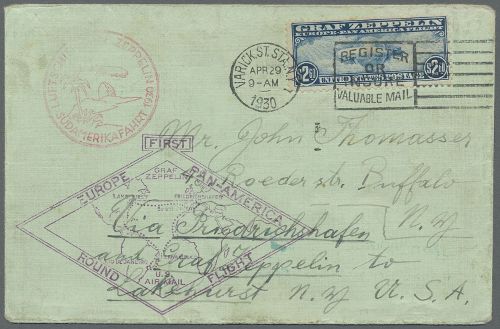 GRAF ZEPPELIN
EUROPE-PAN-AMERICA FLIGHT
$2.60 $2.60
UNITED STATES POSTAGE
VARICK ST. STA. N.Y.
APR 29
9-AM
1930
REGISTER
OR
INSURE
VALUABLE MAIL
LUFTSCHIFF GRAF ZEPPELIN 1930
SÜDAMERIKAFAHRT
FIRST
EUROPE PAN-AMERICA
ROUND FLIGHT
GRAF
ZEPPELIN
LAKEHURST
FRIEDRICHSHAFEN
SEVILLE
RIO DE JANEIRO
U.S.
AIR MAIL
Mr. John Thomasser
Roeder str. Buffalo
N. Y.
Via Friedrichshafen
and Graf Zeppelin to
Lakehurst N. Y. U. S. A.